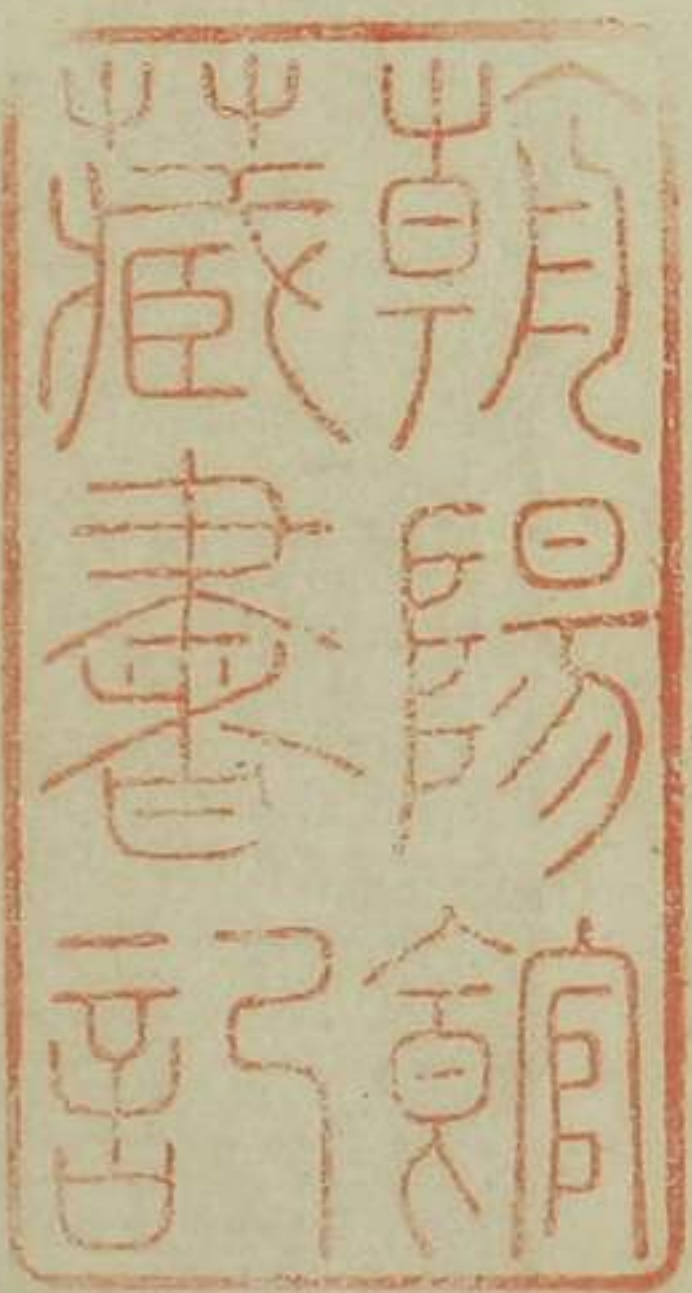 朝陽館
藏書記